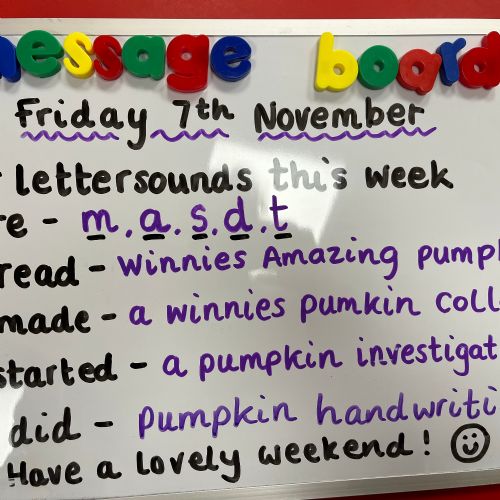 message board
Friday 7th November
lettersounds this week
re - m, a, s, d, t
read - Winnies Amazing pump
made - a winnies pumkin coll
started - a pumpkin investigat
did - pumpkin handwriti
Have a lovely weekend!